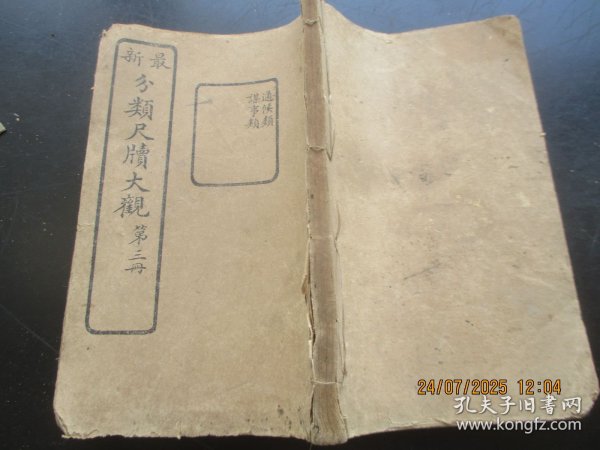 最新
分類尺牘大觀 第三冊
通候類
謀事類
24/07/2025 12:04
孔夫子旧书网
www.kongfz.com